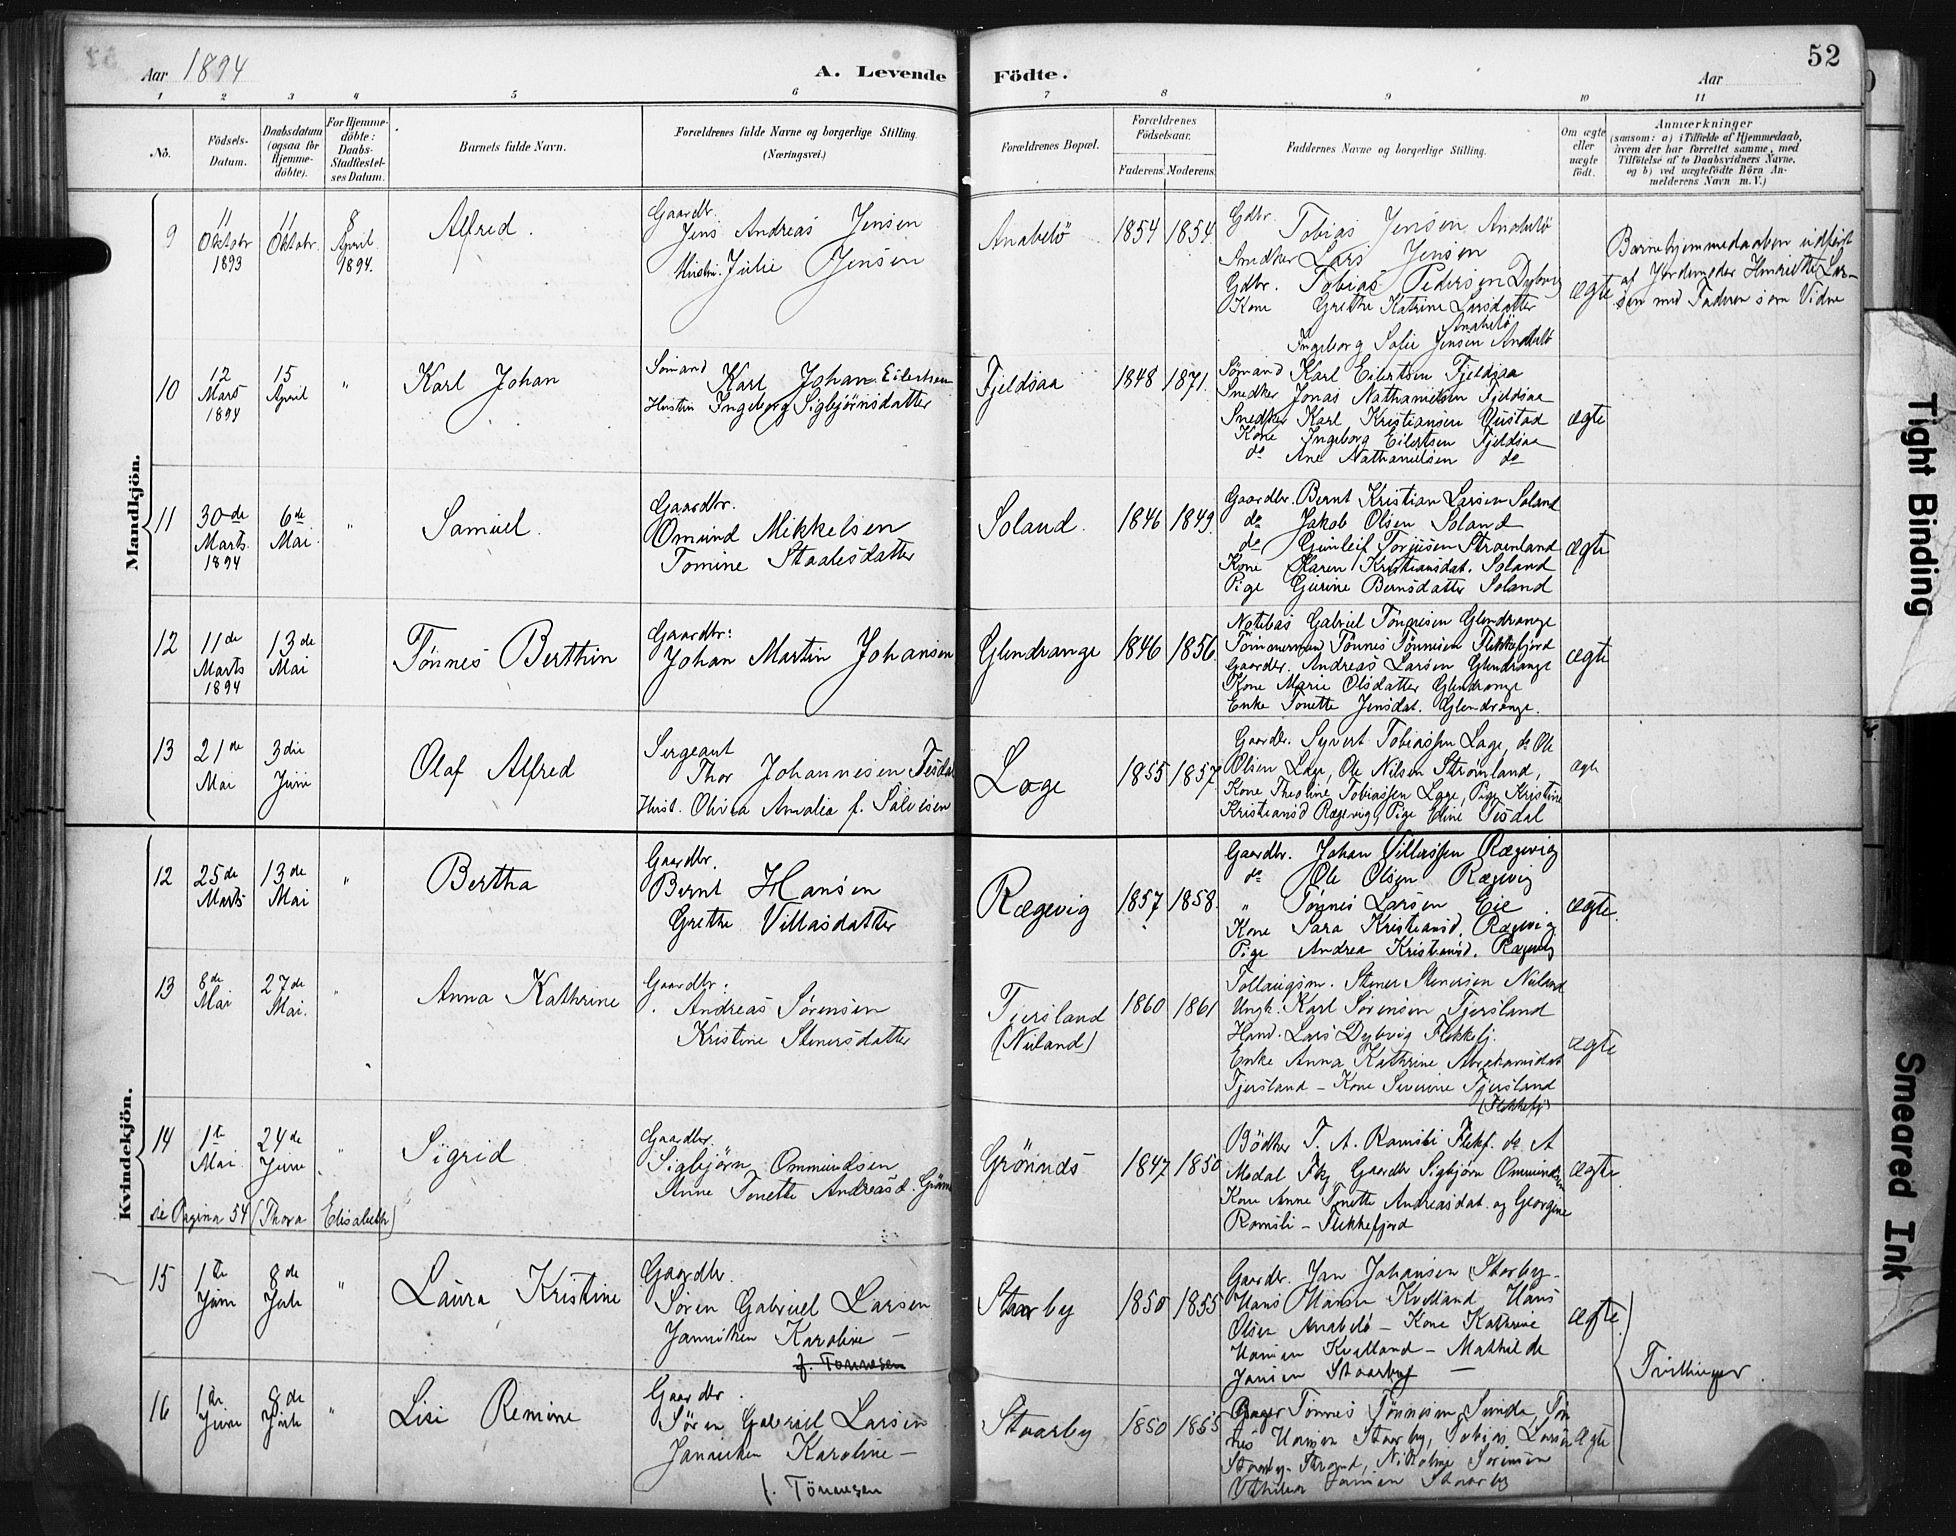 Aar 1894
A. Levende
Födte.
Aar
52
1 2 3 4 5 6 7 8 9 10 11
No.
Födsels-
Datum.
Daabsdatum
(ogsaa for
Hjemme-
döbte).
For Hjemme-
döbte:
Daabs-
Stadfestel-
ses Datum.
Barnets fulde Navn.
Forældrenes fulde Navne og borgerlige Stilling.
(Næringsvei.)
Forældrenes Bopæl.
Forældrenes
Födselsaar.
Faderens.
Moderens.
Faddernes Navne og borgerlige Stilling.
Om ægte
eller
uægte
födt.
Anmærkninger
(saasom: a) i Tilfælde af Hjemmedaab,
hvem der har forrettet samme, med
Tilföielse af to Daabsvidners Navne,
og b) ved uægtefödte Börn An-
melderens Navn m. V.)
Mandkjön.
9
11
Oktobr
1893
11
Oktobr.
8
April
1894.
Alfred.
Gaardbr.
Jens Andreas Jensen
Hustru. Julie Jensen
Anabelö
1854 1854
Gdbr.
Tobias Jensen Anabelö
Snedker Lars Jensen
Gdbr. Tobias Pedersen Dybvig
Kone Grethe Katrine Larsdatter
Anabelö
Ingeborg Sofie Jensen Anabelö
ægte
Barnet hjemmedaaben udført
af Jordemoder Henriette Lar-
sen med Faderen som Vidne
10
12
Mars
1894
15
April
"
Karl Johan
Sømand Karl Johan Eilertsen
Hustru Ingeborg Sigbjørnsdatter
Fjeldsaa
1848 1871.
Sømand Karl Eilertsen Fjeldsaa
Snedker Jonas Nathanielsen Fjeldsaa
Snedker Karl Kristiansen
Kone Ingeborg Eilertsen Fjeldsaa
do Ane Nathanielsen do
ægte
11
30de
Marts
1894
6de
Mai
"
Samuel.
Gaardbr.
Omund Mikkelsen
Tomine Staalesdatter
Soland.
1846 1849.
Gaardbr. Bernt Kristian Larsen Soland
do Jakob Olsen Soland
do Gunleif Torjusen Strømland
Kone Karen Kristiansdat. Soland
Pige Gurine Berntsdatter Soland
ægte
12
11de
Marts
1894
13de
Mai
Tönnes Berthin
Gaardbr:
Johan Martin Johansen
Glendrange
1846 1856.
Notebas Gabriel Tönnesen Glendrange
Tömmermand Tönnes Tönnesen Flekkefjord
Gaardbr. Andreas Larsen Glendrange
Kone Marie Olsdatter Glendrange
Enke Tonette Jensdat. Glendrange.
ægte
13
21de
Mai
3die
Juni
Olaf Alfred
Sergeant
Thor Johannesen Tesdal
Hust. Olivia Amalia f. Salvesen
Loge
1855 1857
Gaardbr. Syvert Tobiassen Loge, do Ole
Olsen Loge, Ole Nilsen Strømland,
Kone Theoline Tobiassen Loge, Pige Kristine
Kristiansd Rægevig, Pige Eline Tesdal
ægte
Kvindekjön.
12
25de
Marts
13de
Mai
"
Bertha
Gaardbr.
Bernt Hansen
Grethe Villasdatter
Rægevig
1857 1858.
Gaardbr. Johan Villassen Rægevig
do Ole Olsen Rægevig
" Tönnes Larsen Eie
Kone Sara Kristiansd. Rægevig
Pige Andrea Kristiansd. Rægevig
ægte.
13
8de
Mai
27de
Mai.
"
Anna Kathrine
Gaardbr.
Andreas Sørensen
Kristine Stenersdatter
Tjersland
(Nuland)
1860 1861
Stener Stenersen Nuland
Ungk. Karl Sørensen Tjersland
Hand. Lars Dybvig Flekkefj.
Enke Anna Kathrine Abrahamsdat
Tjersland – Kone Severine Tjersland
(Flekkefj)
ægte
14
1te
Mai
24de
Juni
"
Sigrid
Gaardbr.
Sigbjørn Ommundsen
Anne Tonette Andreasd.
Grönnds
1847 1850
Bødker T. A. Ramsli Flekf. do A
Modal Fkf Gaardbr Sigbjörn Ommundsen
Kone Anne Tonette Andreasdat. og Georgine
Ramsli – Flekkefjord
ægte
se Pagina 54 (Thora Elisabeth)
15
1te
Juni
8de
Juli
"
Laura Kristine
Gaardbr.
Søren Gabriel Larsen
Janniken Karoline –
f. Tönnesen
Staarby
1850 1855
Gaardbr. Jan Johansen Staarby –
Hans Hansen Kvelland Hans
Olsen Anabelö – Kone Kathrine
Hansen Kvelland – Mathilde
Jansen Staarby –
ægte
Tvillinger
16
1te
Juni
8de
Juli
"
Lisi Remine
Gaardbr.
Søren Gabriel Larsen
Janniken Karoline –
f. Tönnesen
Staarby
1850 1855
Tönnes Tönnesen Sunde, Tön
nes Hansen Staarby, Tobias Larsen
Staarby – Strand, Nikoline Sørensen
Jansen Staarby
ægte
Tight Binding
Smeared Ink